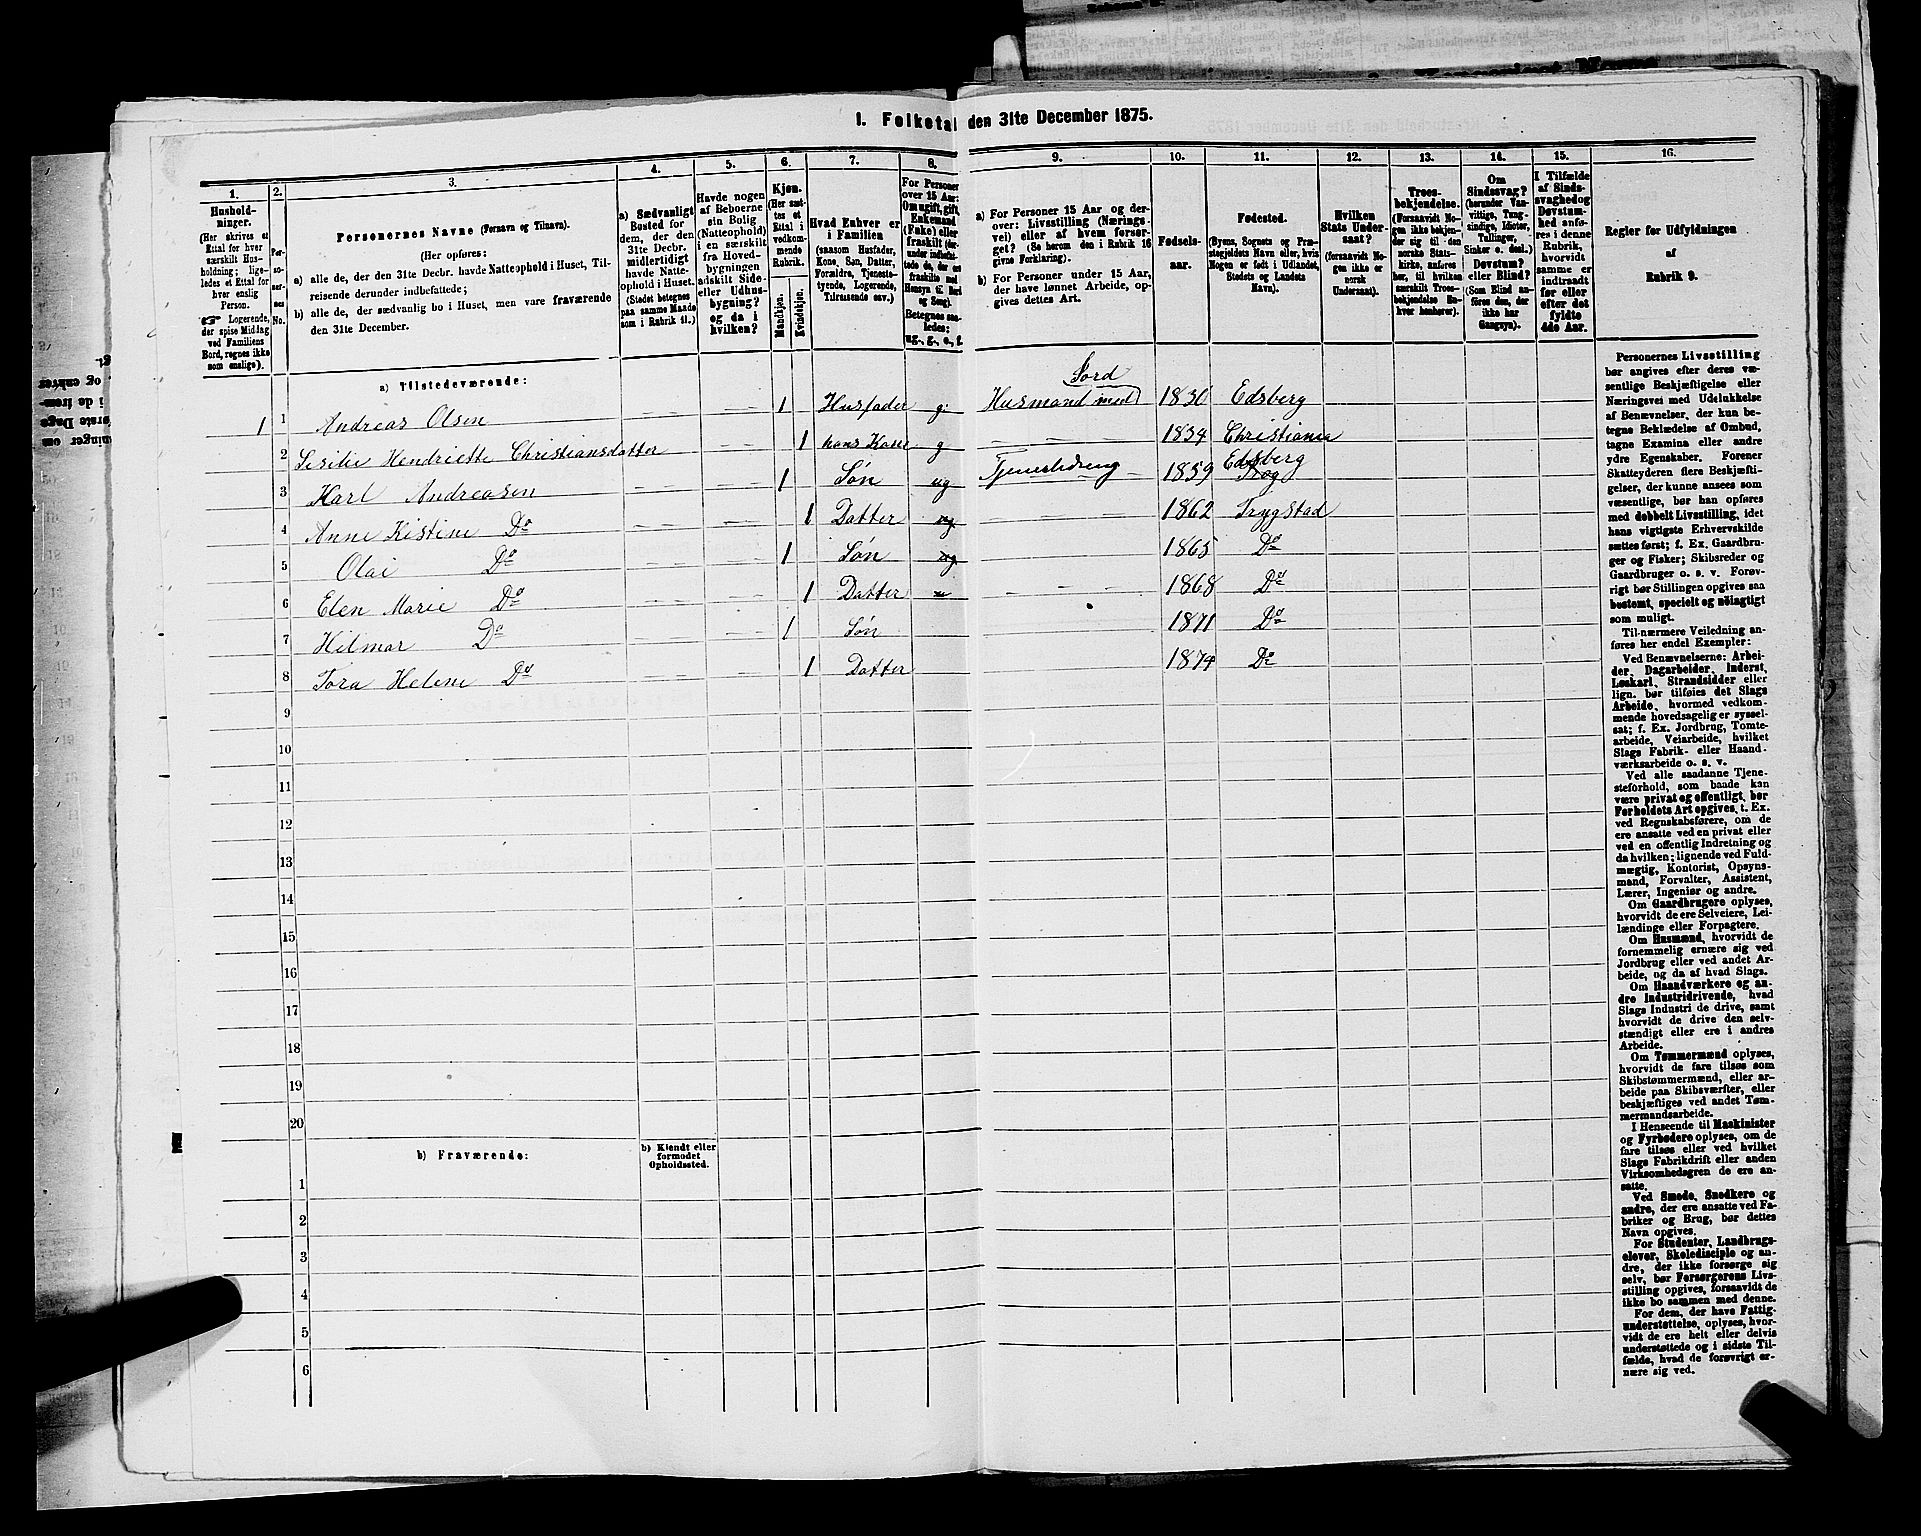 1. Folketal den 31te December 1875.
1. 2. 3. 4. 5. 6. 7. 8. 9. 10. 11. 12. 13. 14. 15. 16.
Hushold-
ninger.
(Her skrives et
Ettal for hver
særskilt Hus-
holdning; lige-
ledes et Ettal for
hver enslig
Person.
☞ Logerende,
der spise Middag
ved Familiens
Bord, regnes ikke
som enslige).
Per-
so-
ner-
nes
No.
Personernes Navne (Fornavn og Tilnavn).
(Her opføres:
a) alle de, der den 31te Decbr. havde Natteophold i Huset, Til-
reisende derunder indbefattede;
b) alle de, der sædvanlig bo i Huset, men vare fraværende
den 31te December.
a) Sædvanligt
Bosted for
dem, der den
31te Decbr.
midlertidigt
havde Natte-
ophold i Huset.
(Stedet betegnes
paa samme Maade
som i Rubrik 11.)
Havde nogen
af Beboerne
sin Bolig
(Natteophold)
i en særskilt
fra Hoved-
bygningen
adskilt Side-
eller Udhus-
bygning?
og da i
hvilken?
Kjøn.
(Her sæt-
tes et
Ettal i
vedkom-
mende
Rubrik.
Mandkjøn.
Kvindekjøn.
Hvad Enhver er
i Familien
(saasom Husfader,
Kone, Søn, Datter,
Forældre, Tjeneste-
tyende, Logerende,
Tilreisende osv.)
For Personer
over 15 Aar:
Om ugift, gift,
Enkemand
(Enke) eller
fraskilt
Betegnes saa-
ledes:
ug., g., e., f.
a) For Personer 15 Aar og der-
over: Livsstilling (Nærings-
vei) eller af hvem forsør-
get? (Se herom den i Rubrik 16
givne Forklaring).
b) For Personer under 15 Aar,
der have lønnet Arbeide, op-
gives dettes Art.
Fødsels-
aar.
Fødested.
(Byens, Sognets og Præ-
stegjeldets Navn eller, hvis
Nogen er født i Udlandet,
Stedets og Landets
Navn).
Hvilken
Stats Under-
saat?
(forsaavidt No-
gen ikke er
norsk
Undersaat).
Troes-
bekjendelse.
(Forsaavidt No-
gen ikke bekjen-
der sig til den
norske Stats-
kirke, anføres
her, til hvilken
særskilt Troes-
bekjendelse En-
hver henhører).
Om
Sindssvag?
(herunder Van-
vittige, Tung-
sindige, Idioter,
Tullinger,
Sinker o. desl.).
Døvstum?
eller Blind?
(Som Blind an-
føres den, der
ikke har
Gangsyn).
I Tilfælde
af Sinds-
svaghed og
Døvstum-
hed anfø-
res i denne
Rubrik,
hvorvidt
samme er
indtraadt
før eller
efter det
fyldte
4de Aar.
Regler for Udfyldningen
af
Rubrik 9.
a) Tilstedeværende:
1 1 Andreas Olsen 1 Husfader g: Husmand med Jord 1830 Edsberg
2 Sesilie Hendriette Christiansdatter 1 hans Kone g 1834 Christiania
3 Karl Andreasen 1 Søn ug Tjenestedreng 1859 Edsberg
4 Anne Kistine Do 1 Datter ug 1862 Trygstad
5 Olai Do 1 Søn ug 1865 Do
6 Elen Marie Do 1 Datter 1868 Do
7 Hilmar Do 1 Søn 1871 Do
8 Tora Helene Do 1 Datter 1874 Do
9
10
11
12
13
14
15
16
17
18
19
20
b) Fraværende:
b) Kjendt eller
formodet
Opholdssted.
1
2
3
4
5
6
Personernes Livsstilling
bør angives efter deres væ-
sentlige Beskjæftigelse eller
Næringsvei med Udelukkelse
af Benævnelser, der kun be-
tegne Beklædelse af Ombud,
tagne Examina eller andre
ydre Egenskaber. Forener
Skatteyderen flere Beskjæfti-
gelser, der kunne ansees som
væsentlige, bør han opføres
med dobbelt Livsstilling, idet
hans vigtigste Erhvervskilde
sættes først; f. Ex. Gaardbru-
ger og Fisker; Skibsreder og
Gaardbruger o. s. v. Forøv-
rigt bør Stillingen opgives saa
bestemt, specielt og nøiagtigt
som muligt.
Til nærmere Veiledning an-
føres her endel Exempler:
Ved Benævnelserne: Arbei-
der, Dagarbeider, Inderst,
Løskarl, Strandsidder eller
lign. bør tilføies det Slags
Arbeide, hvormed vedkom-
mende hovedsagelig er syssel-
sat; f. Ex. Jordbrug, Tomte-
arbeide, Veiarbeide, hvilket
Slags Fabrik- eller Haand-
værksarbeide o. s. v.
Ved alle saadanne Tjene-
steforhold, som baade kan
være privat og offentligt, bør
Forholdets Art opgives, t. Ex.
ved Regnskabsførere, om de
ere ansatte ved en privat eller
ved en offentlig Indretning og
da hvilken; lignende ved Fuld-
mægtig, Kontorist, Opsyns-
mand, Forvalter, Assistent,
Lærer, Ingeniør og andre.
Om Gaardbrugere oplyses,
hvorvidt de ere Selveiere, Lei-
lændinge eller Forpagtere.
Om Husmænd, hvorvidt de
fornemmelig ernære sig ved
Jordbrug eller ved andet Ar-
beide, og da af hvad Slags.
Om Haandværkere og an-
dre Industridrivende, hvad
Slags Industri de drive, samt
hvorvidt de drive den selv-
stændigt eller ere i andres
Arbeide.
Om Tømmermænd oplyses,
hvorvidt de fare tilsøs som
Skibstømmermænd, eller ar-
beide paa Skibsværfter, eller
beskjæftiges ved andet Tøm-
mermandsarbeide.
I Henseende til Maskinister
og Fyrbødere oplyses, om de
fare tilsøs eller ved hvilket
Slags Fabrikdrift eller anden
Virksomhedsgren de ere an-
satte.
Ved Smede, Snedkere og
andre, der ere ansatte ved Fa-
briker og Brug, bør dettes
Navn opgives.
For Studenter, Landbrugs-
elever, Skoledisciple og an-
dre, der ikke forsørge sig
selv, bør Forsørgerens Livs-
stilling opgives, forsaavidt de
ikke bo sammen med denne.
For dem, der have Fattig-
understøttelse, oplyses, hvor-
vidt de ere helt eller delvis
understøttede og i sidste Til-
fælde, hvad de forøvrigt er-
nære sig ved.